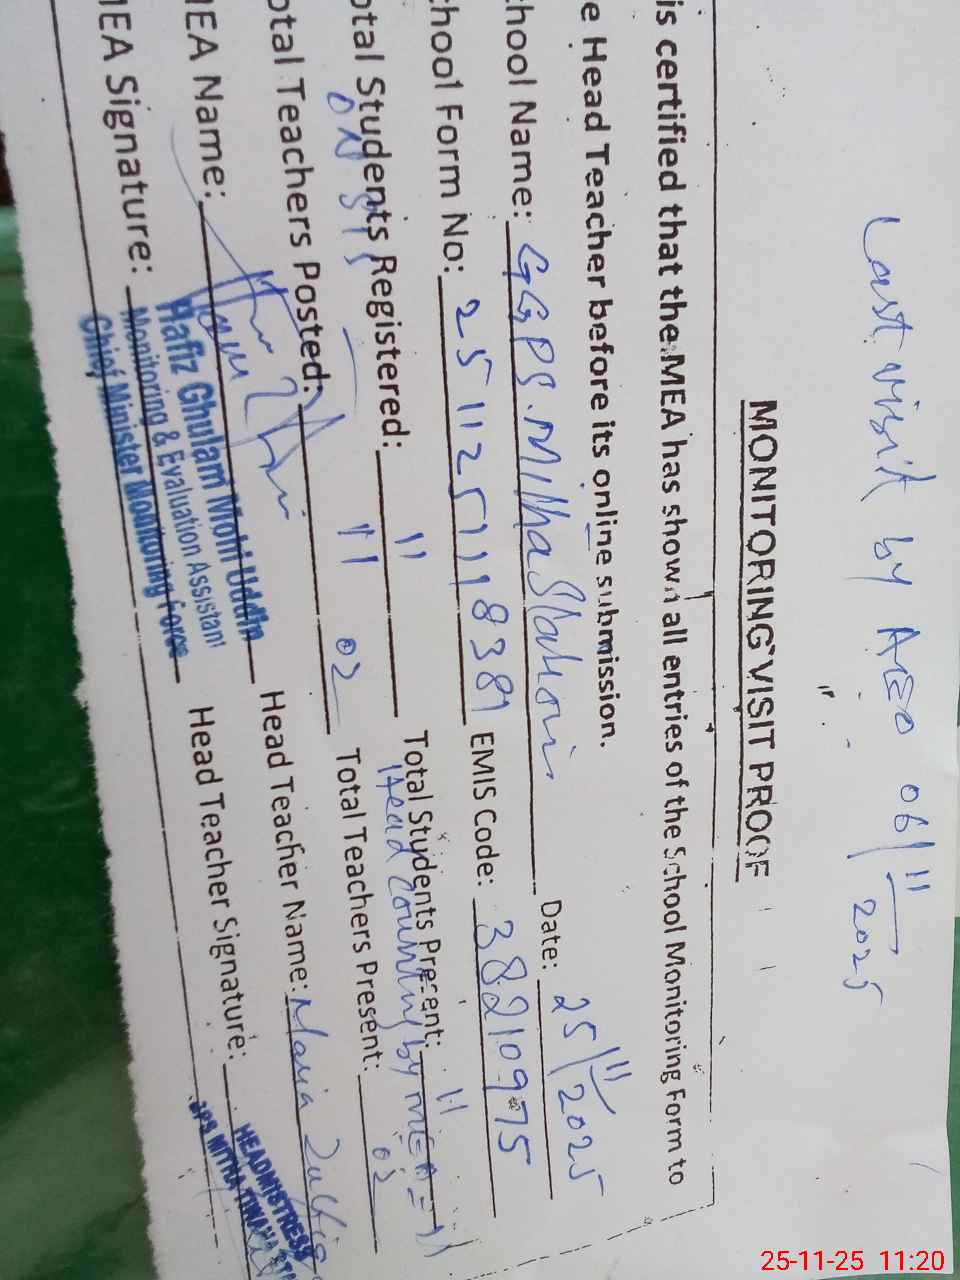 Last visit by AEO 06/11/2025
MONITORING VISIT PROOF
is certified that the MEA has shown all entries of the School Monitoring Form to
e Head Teacher before its online submission.
Date: 25/11/2025
chool Name: GGPS. Mitha
chool Form No: 25112511838 EMIS Code: 38210975
otal Students Registered: 11 Total Students Present: 11
Head Counting by MEA = 11
otal Teachers Posted: 02 Total Teachers Present: 02
MEA Name: Head Teacher Name: Maria
Hafiz Ghulam Mohi Uddin
Monitoring & Evaluation Assistant
Chief Minister Monitoring Force
MEA Signature: Head Teacher Signature:
HEADMISTRESS
GPS MITHA
25-11-25 11:20